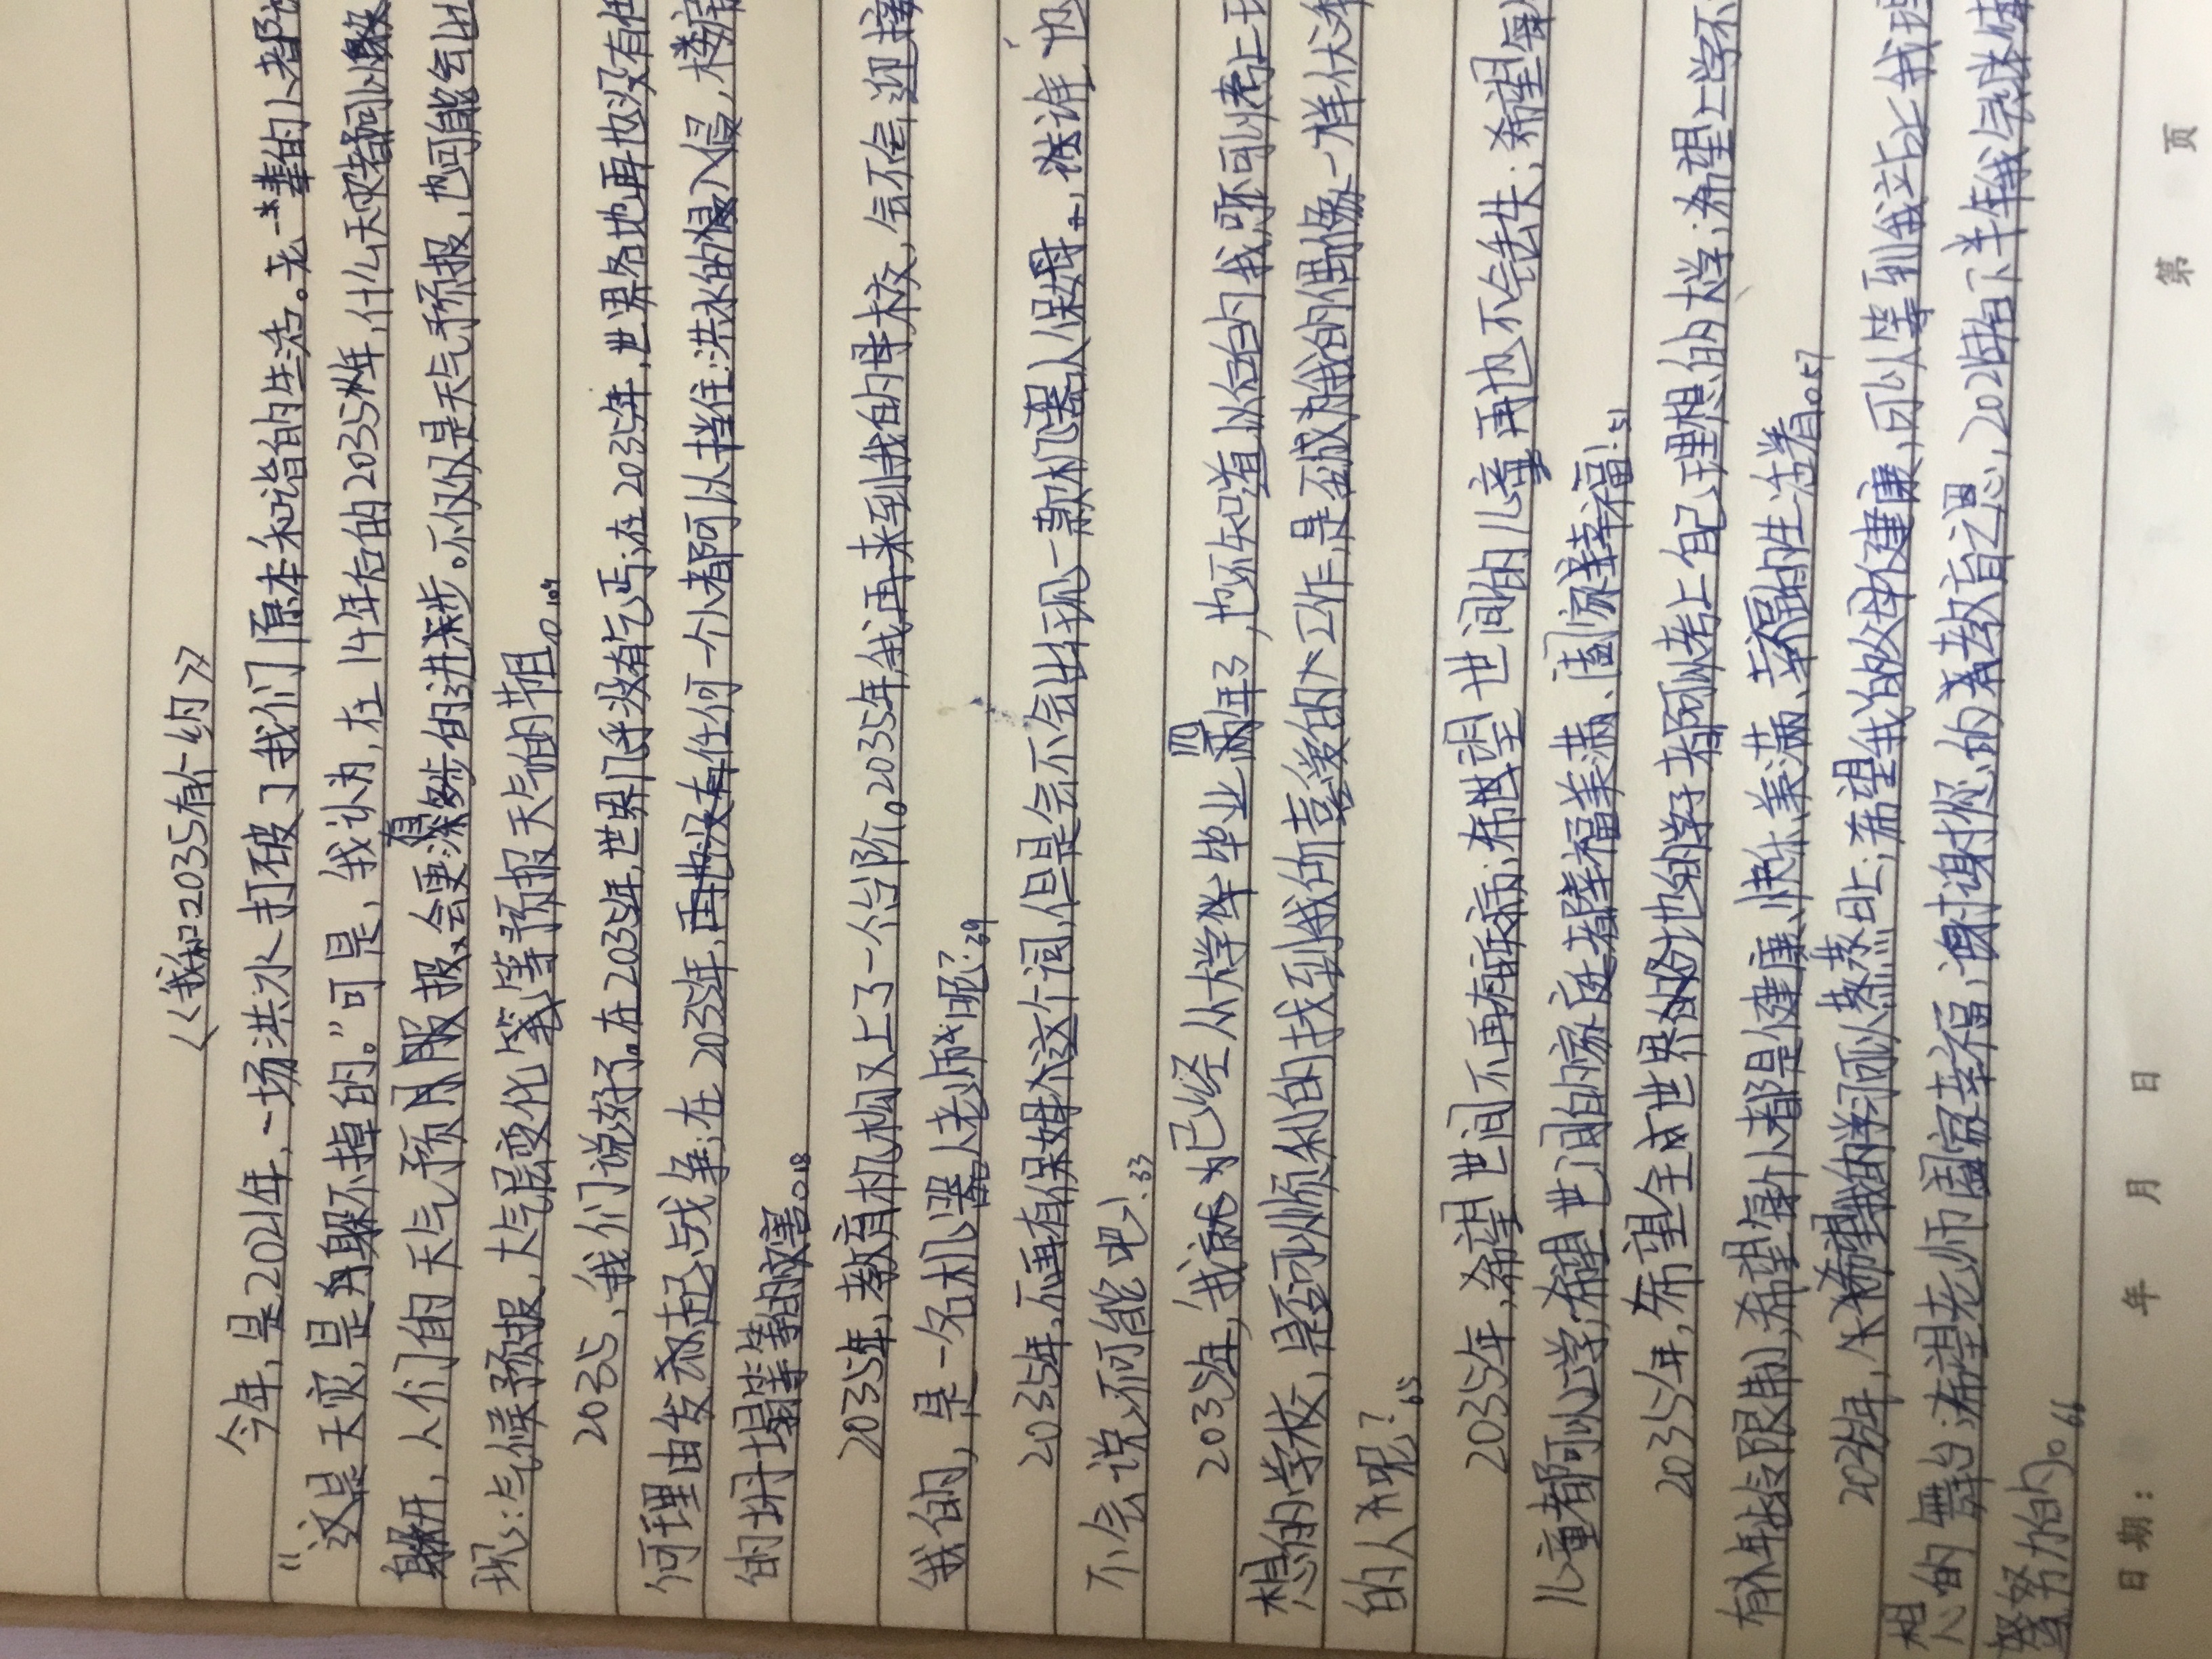 《我和2035有个约》
今年,是2021年,一场洪水打破了我们原本和谐的生活。老一辈的人都说
"这是天灾,是躲不掉的。"可是,我认为,在14年后的2035年,什么天灾都可以躲
躲开,人们的天气预报,会更有深的进步。不仅仅是天气预报,也可能会出
现:气候预报、大气层变化等等预报天气的节目。104
2035,我们说好了。在2035年,世界几乎没有乞丐;在2035年,世界各地再也没有任
何理由发起战争;在2035年,再也没有任何一个小都可以挡住洪水的侵入,楼房
的坍塌等等的灾害。018
2035年,教育机构又上了一个台阶。2035年,我再来到我的母校,会不会迎接
我的,是一名机器人老师呢?39
2035年,不再有保姆这个词,但是会不会出现一款机器人保姆。谁也
不会说不可能吧!33
2035年,我已经从大学毕业四年了,也不知道以后的我,可以考上理
想的学校,是否可以顺利的找到我所喜爱的工作,是否成为我的偶像一样优秀
的人呢?65
2035年,希望世间不再有疾病;希望世间的儿童再也不会丢失;希望每个
儿童都可以上学;希望世间的家庭都幸福美满、阖家幸福!51
2035年,希望全世界各地的学子都可以考上自己理想的大学;希望上学不
有年龄限制,希望每个人都是健康、快乐、美满、幸福的生活着。57
2035年,希望我的学习可以蒸蒸日上;希望我的父母健康,可以等到我站上我理
想的舞台;希望老师阖家幸福,谢谢您的教育之恩,2021年下半年我会继续
努力的。66
日期: 年 月 日 第 页